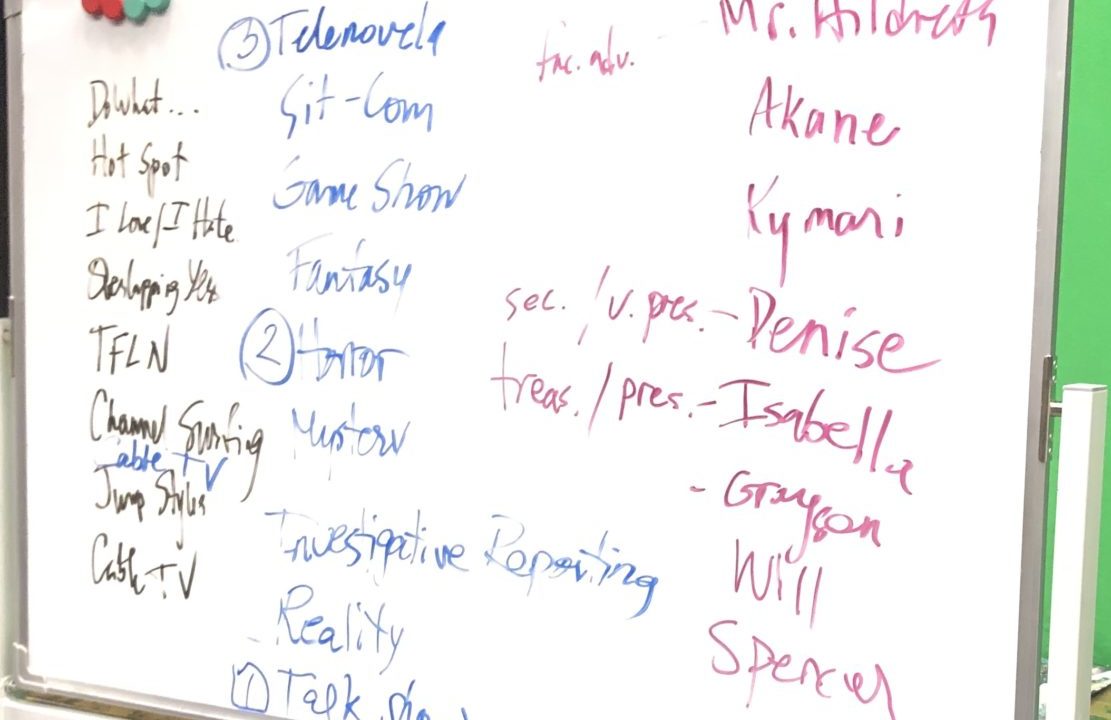 Do What...
Hot Spot
I Love/I Hate
TFLN
Channel Surfing
Cable TV
Jump Styles
Cable TV
③ Telenovela
Sit-Com
Game Show
Fantasy
② Horror
Mystery
Investigative Reporting
Reality
① Talk show
fac. adv. - Mr. Hildreth
Akane
Kymari
sec. / v. pres. - Denise
treas. / pres. - Isabella
- Grayson
Will
Spencer